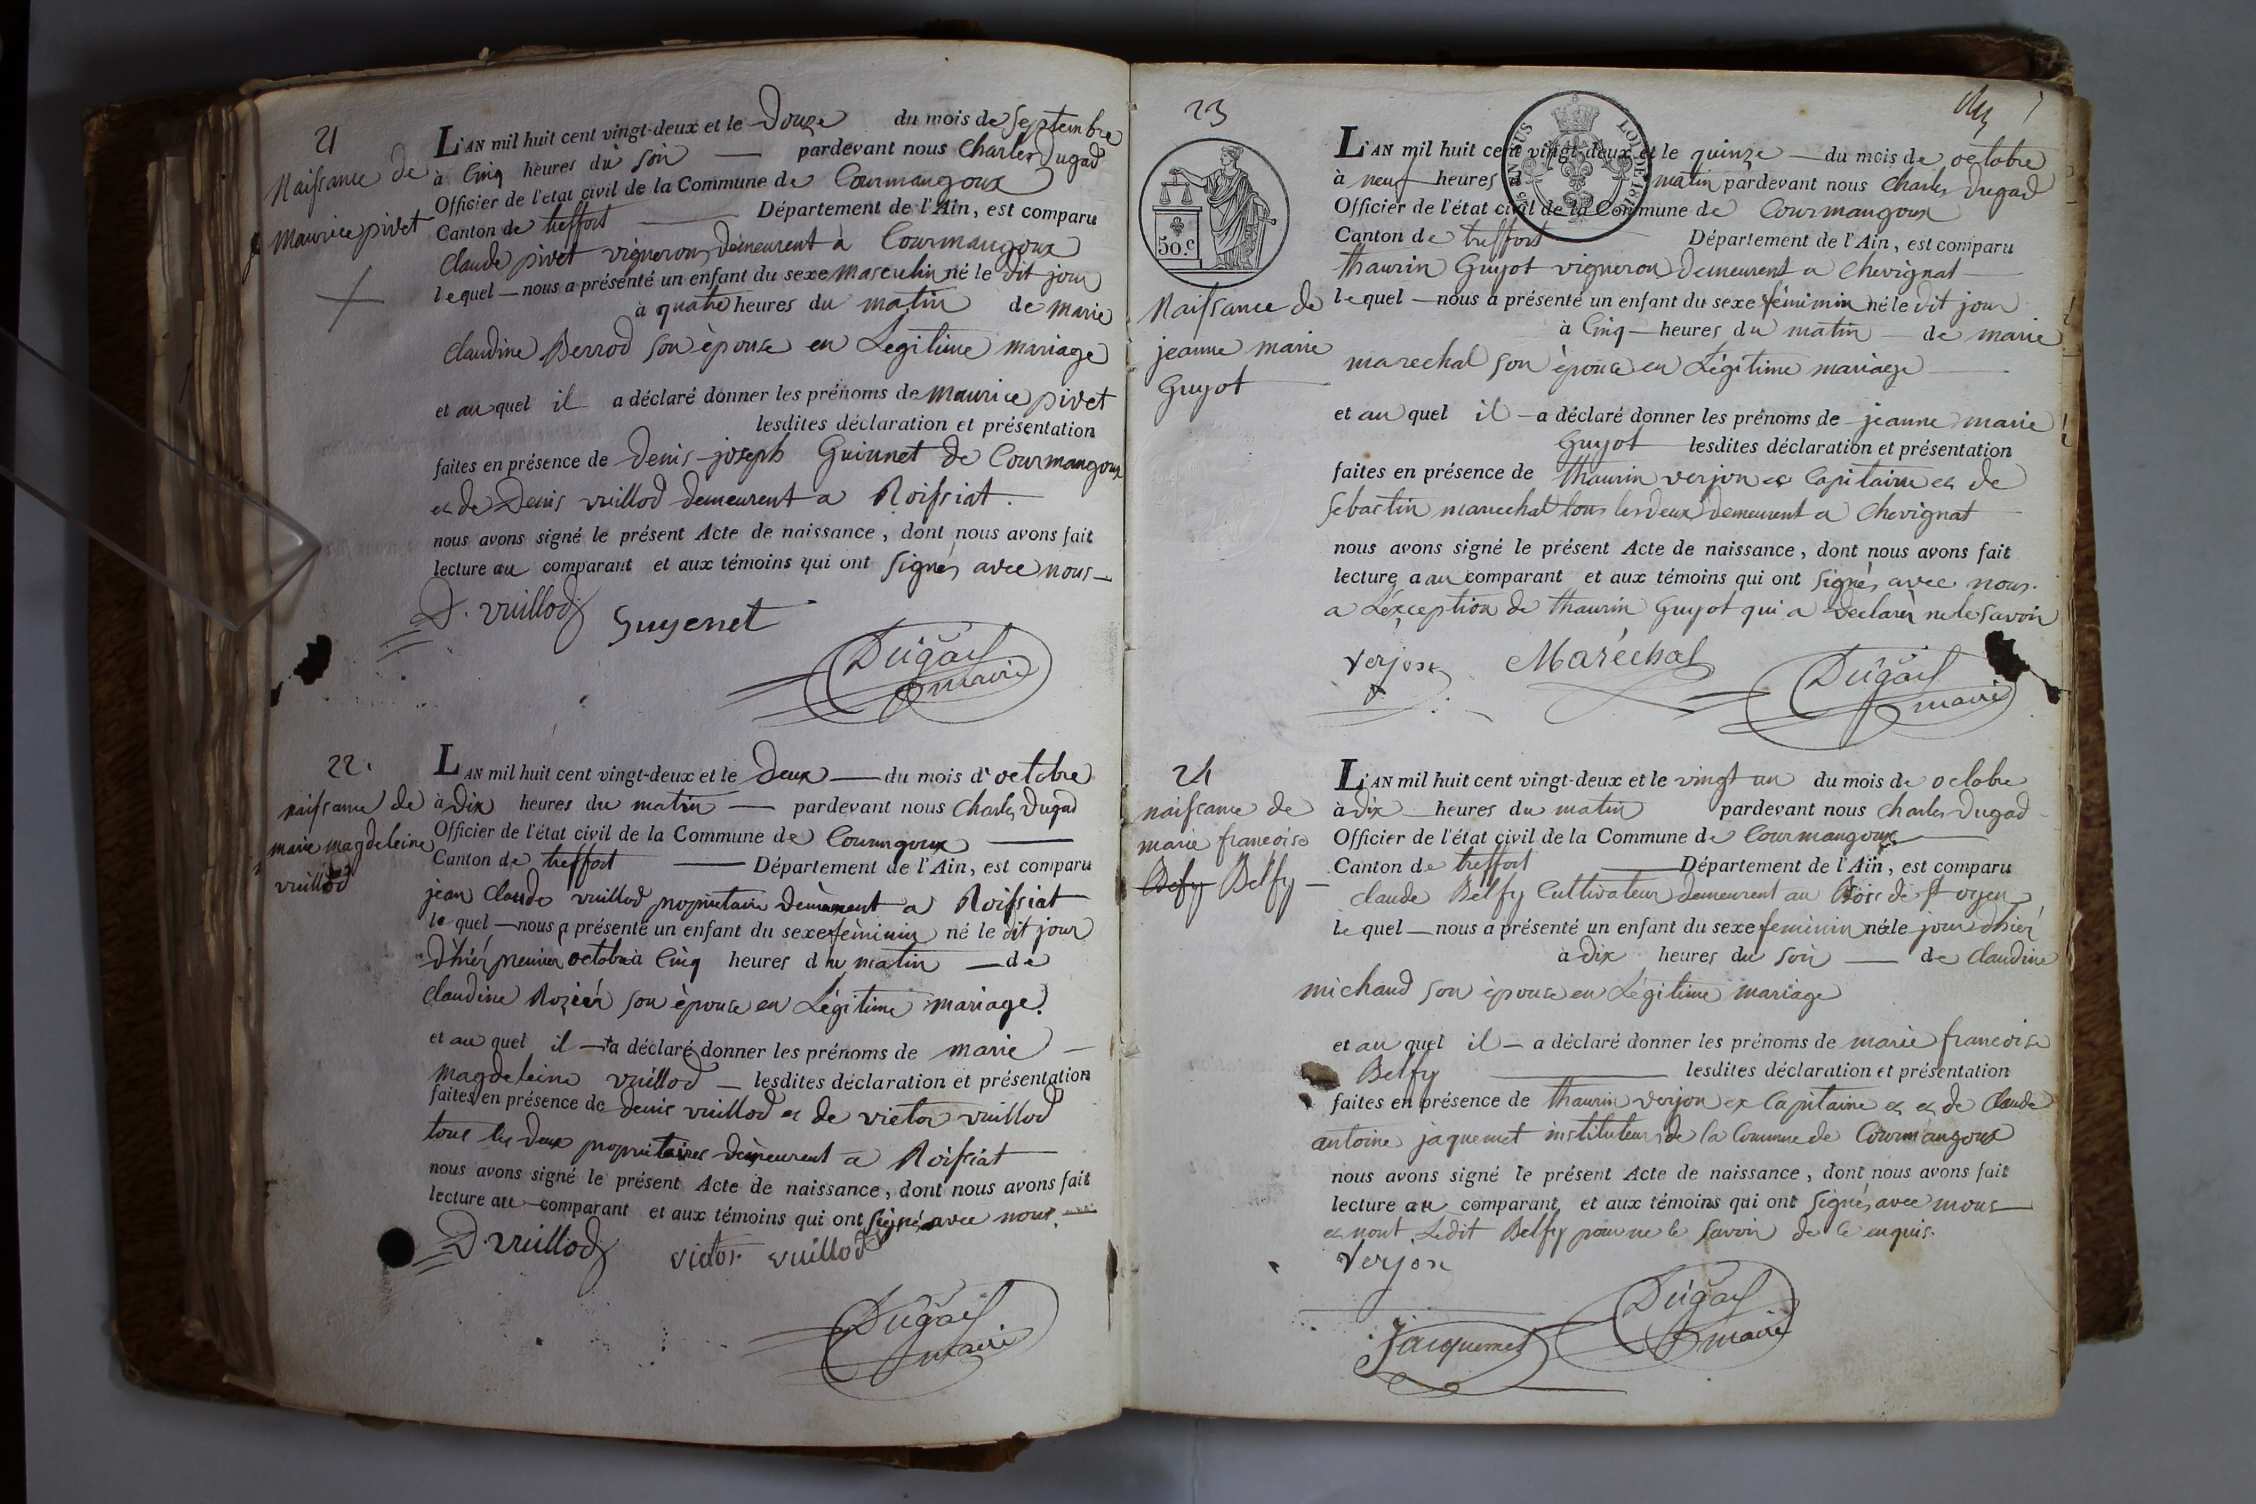 21
Naissance de
Maurice pivet
L'AN mil huit cent vingt-deux et le Douze du mois de Septembre
à Cinq heures du soir pardevant nous Charles Dugad
Officier de l'état civil de la Commune de Courmangoux
Canton de treffort Département de l'Ain, est comparu
Claude pivet vigneron demeurent à Courmangoux
lequel nous a présenté un enfant du sexe masculin né le dit jour
à quatre heures du matin de marie
Claudine Berrod son èpouse en Legitime mariage
et au quel il a déclaré donner les prénoms de Maurice pivet
lesdites déclaration et présentation
faites en présence de Denis joseph Guinnet de Courmangoux
et de Denis vuillod demeurent a Roissiat.
nous avons signé le présent Acte de naissance, dont nous avons fait
lecture au comparant et aux témoins qui ont Signés avec nous
D. vuillod Guyenet
Dugad
maire
22.
naissance de
marie magdeleine
vuillod
L'AN mil huit cent vingt-deux et le Deux du mois d'octobre
à Dix heures du matin pardevant nous Charles Dugad
Officier de l'état civil de la Commune de
Canton de treffort Département de l'Ain, est comparu
jean Claude vuillod proprietaire demeurent a Roissiat
le quel nous a présenté un enfant du sexe fèminin né le dit jour
d'hiér premier octobre à Cinq heures du matin de
Claudine Rozier son èpouse en Légitime mariage.
et au quel il a déclaré donner les prénoms de marie
magdeleine vuillod lesdites déclaration et présentation
faites en présence de denis vuillod et de victor vuillod
tous les deux proprietaires demeurent a Roissiat
nous avons signé le présent Acte de naissance, dont nous avons fait
lecture au comparant et aux témoins qui ont signé avec nous.
D vuillod victor vuillod
Dugad
maire
23
50.c
Naissance de
jeanne marie
Guyot
L'AN mil huit cent vingt-deux et le quinze du mois de octobre
à neuf heures matin pardevant nous Charles Dugad
Officier de l'état civil de la Commune de Courmangoux
Canton de treffort Département de l'Ain, est comparu
thaurin Guyot vigneron demeurent a Chevignat
lequel nous a présenté un enfant du sexe féminin né le dit jour
à Cinq heures du matin de marie
marechal son èpouse en Légitime mariage
et au quel il a déclaré donner les prénoms de jeanne marie
Guyot lesdites déclaration et présentation
faites en présence de thaurin verjon ex Capitaine et de
Sebastin marechal tous les deux demeurent a Chevignat
nous avons signé le présent Acte de naissance, dont nous avons fait
lecture a au comparant et aux témoins qui ont Signés avec nous.
a L'éxception de thaurin Guyot qui a declarer ne le savoir
Verjon Maréchal
Dugad
maire
24
naissance de
marie francoise
Befy Belfy
L'AN mil huit cent vingt-deux et le vingt un du mois de octobre
à Dix heures du matin pardevant nous Charles Dugad
Officier de l'état civil de la Commune de Courmangoux
Canton de treffort Département de l'Ain, est comparu
Claude Belfy Cultivateur demeurent au Bois de St oyen
le quel nous a présenté un enfant du sexe feminin né le jour d'hier
à Dix heures du soir de Claudine
michaud son èpouse en Légitime mariage
et au quel il a déclaré donner les prénoms de marie francoise
Belfy lesdites déclaration et présentation
faites en présence de thaurin verjon ex Capitaine et et de Claude
antoine jaquemet instituteur de la Commune de Courmangoux
nous avons signé le présent Acte de naissance, dont nous avons fait
lecture au comparant et aux témoins qui ont Signés avec nous
et nont Ledit Belfy pour ne le savoir de ce enquis.
Verjon
Dugad
maire
Jacquemet